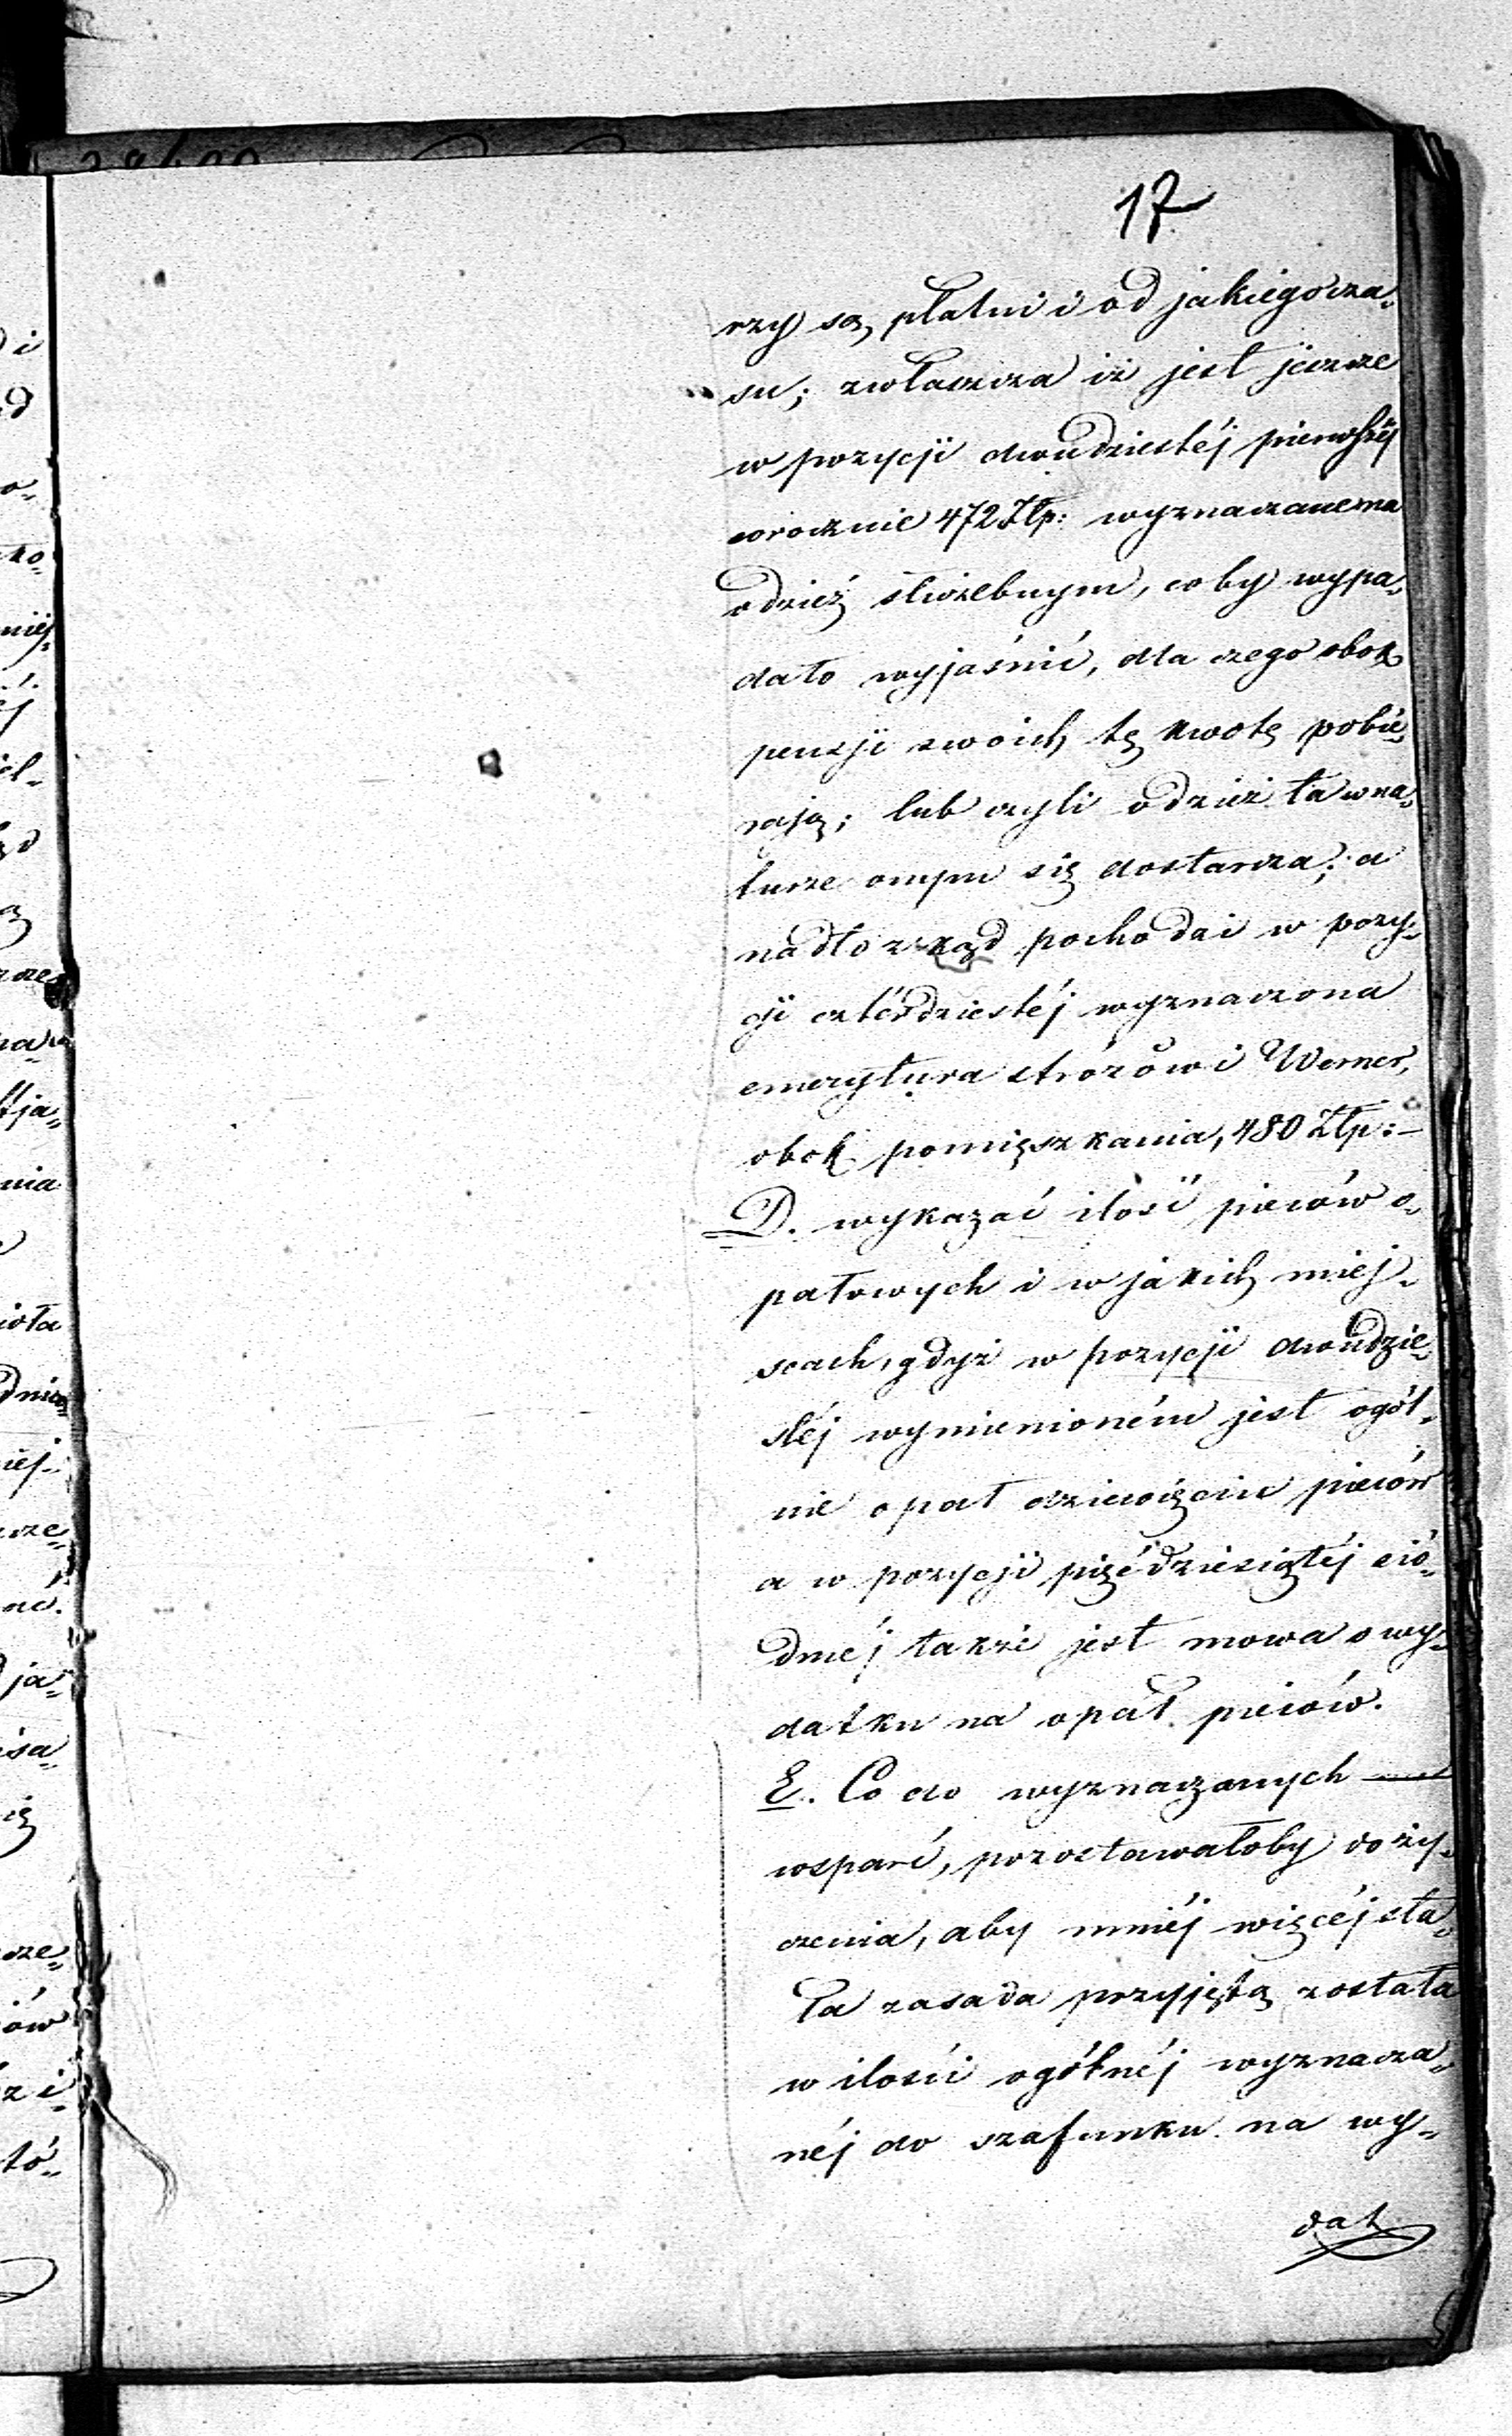 17
rzy są płatni i od jakiego cza„
su; zwłaszcza iż jest jeszcze
w pozycji dwudziestéj pierwszéj
corocznie 472 Złp: wyznaczane na
odzież służebnym, coby wypa„
dało wyjaśnić, dla czego obok
pensji swoich tę kwotę pobie„
rają; lub czyli odzież ta w na„
turze onym się dostarcza; a
nadto zkąd pochodzi w pozy„
cji czterdziestéj wyznaczona
emerytura stróżowi Werner,
obok pomięszkania, 480 Złp: —
D. wykazać ilość pieców o„
pałowych i w jakich miej„
scach, gdyż w pozycji dwudzie„
stéj wymienioném jest ogól„
nie opał dziewięciu pieców
a w pozycji pięćdziesiątéj sió„
dméj także jest mowa o wy„
datku na opał pieców.
E. Co do wyznaczanych —
wsparć, pozostawałoby do ży„
czenia, aby mniéj więcéj sta„
ła zasada przyjętą została
w ilości ogólnéj wyznacza„
néj do szafunku na wy„
dat